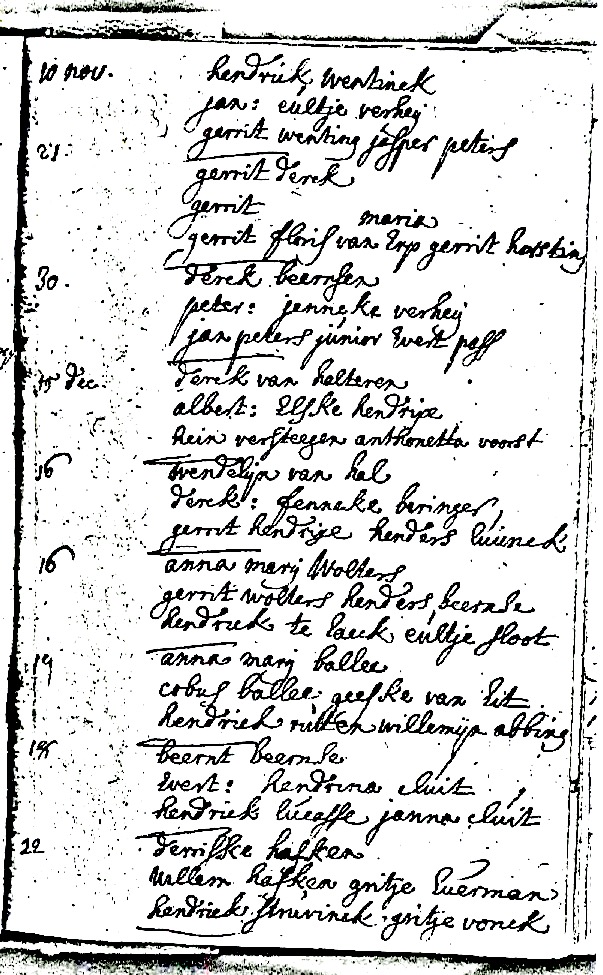 10 nov. hendrick wentinck
jan: eultje verheij
gerrit wenting jesper peters
21. gerrit derck
gerrit
maria
gerrit floris van Erp gerrit horsting
30. derck beernsen
peter: jenneke verheij
jan peters junior Evert pass
15 dec. derck van halteren
albert: Elske hendrixe
hein versteegen anthonetta voorst
16 wendelijn van hal
derck: fenneke beringer,
gerrit hendrixe henders luunck
16 anna marij Wolters
gerrit wolters henders beernse
hendrick te laeck eultje sloot
19 anna marij ballee
cobus ballee geeske van Eit
hendrick rutten willemijn abbing
18 beernt beernse
Evert: hendrina cluit
hendrick lucasse janna cluit
22 derriske hafken
willem hafken gritje Euerman
hendrick struvinck. gritje vonck